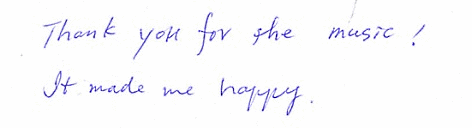 Thank you for the music!
It made me happy.